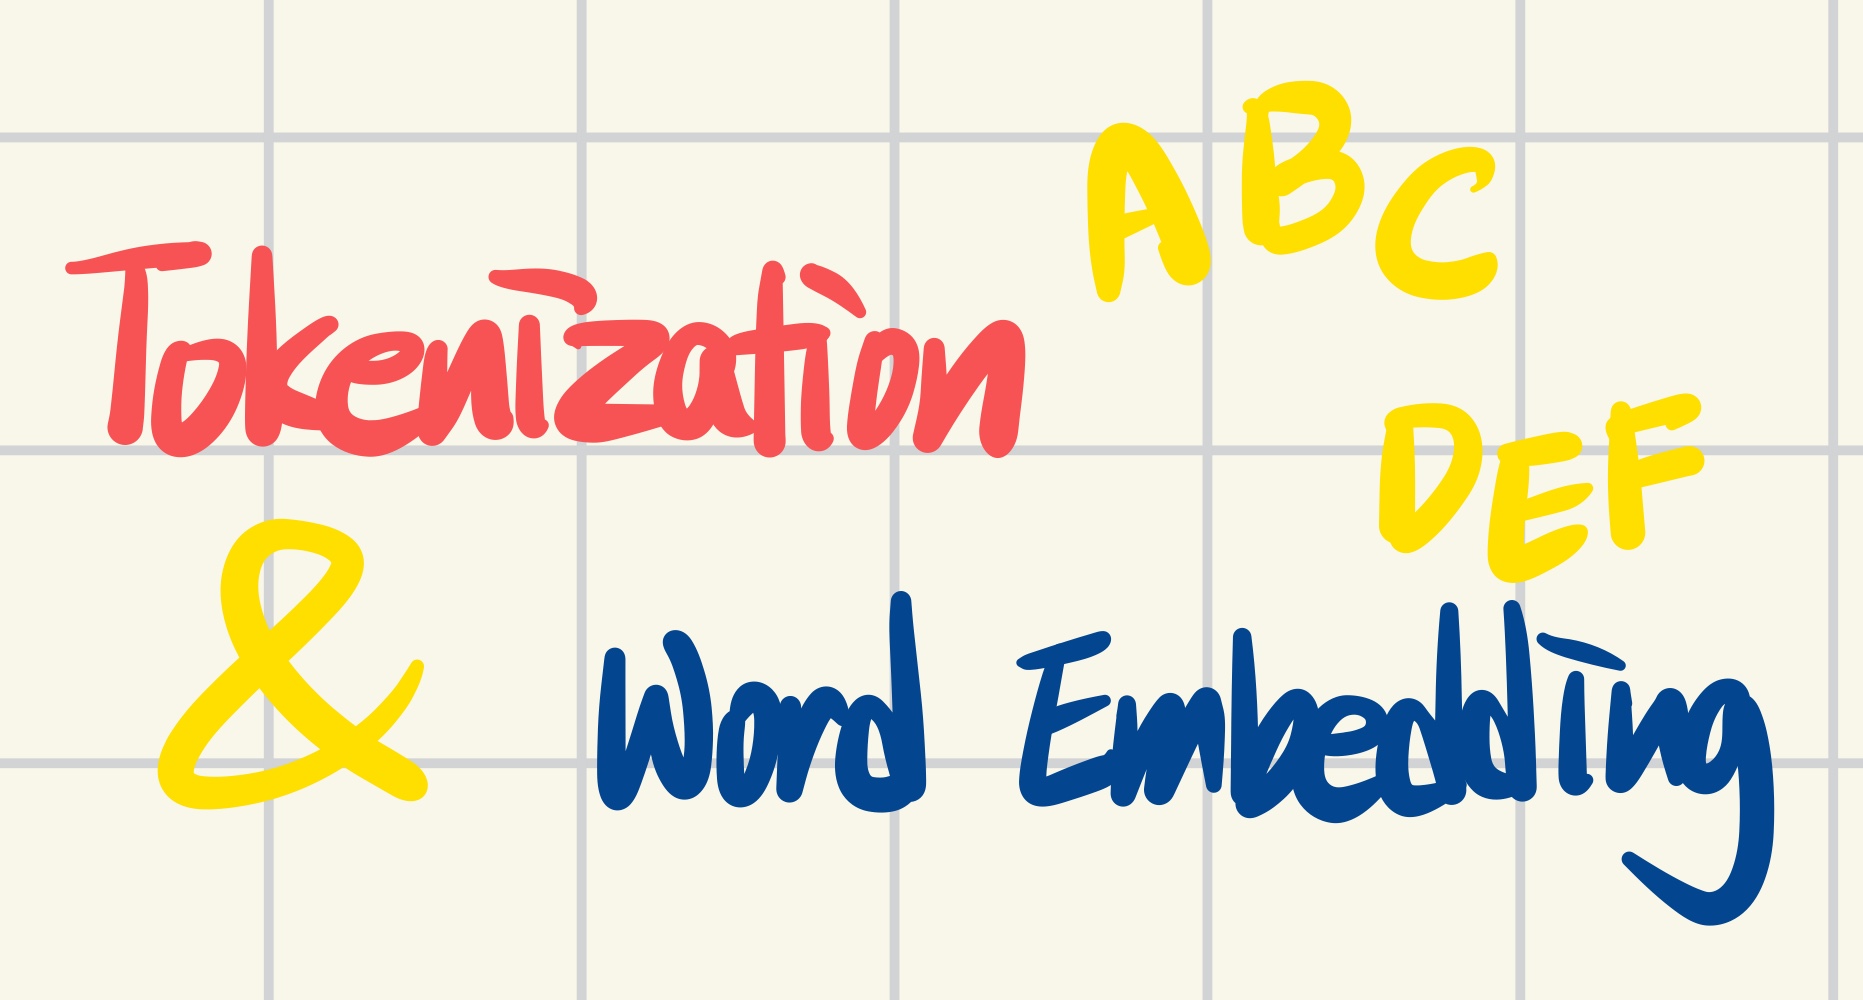 ABC
Tokenization
DEF
&
Word Embedding